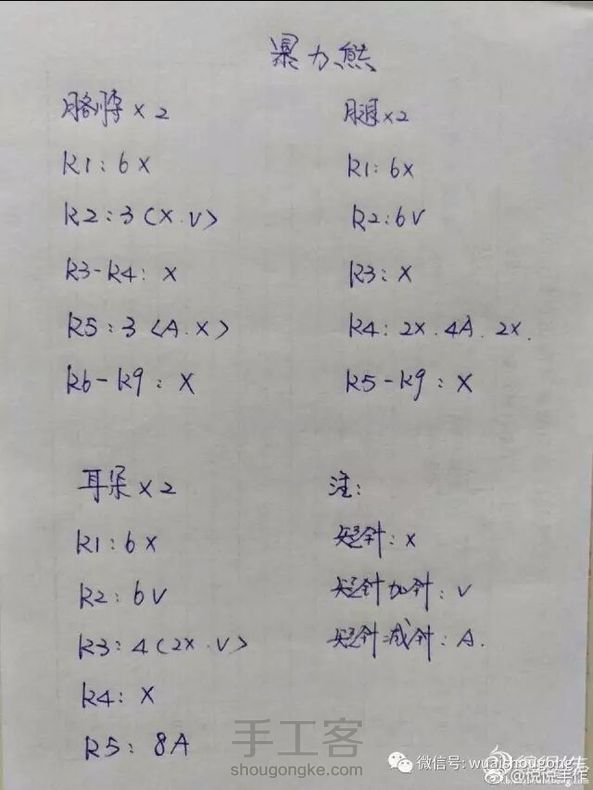 暴力熊
胳膊×2
R1:6X
R2:3(X.V)
R3-R4:X
R5:3(A.X)
R6-R9:X
腿×2
R1:6X
R2:6V
R3:X
R4:2X.4A.2X.
R5-R9:X
耳朵×2
R1:6X
R2:6V
R3:4(2X.V)
R4:X
R5:8A
注:
短针:X
短针加针:V
短针减针:A.
手工客
shougongke.com
微信号: wuaishougong
@悦悦手作